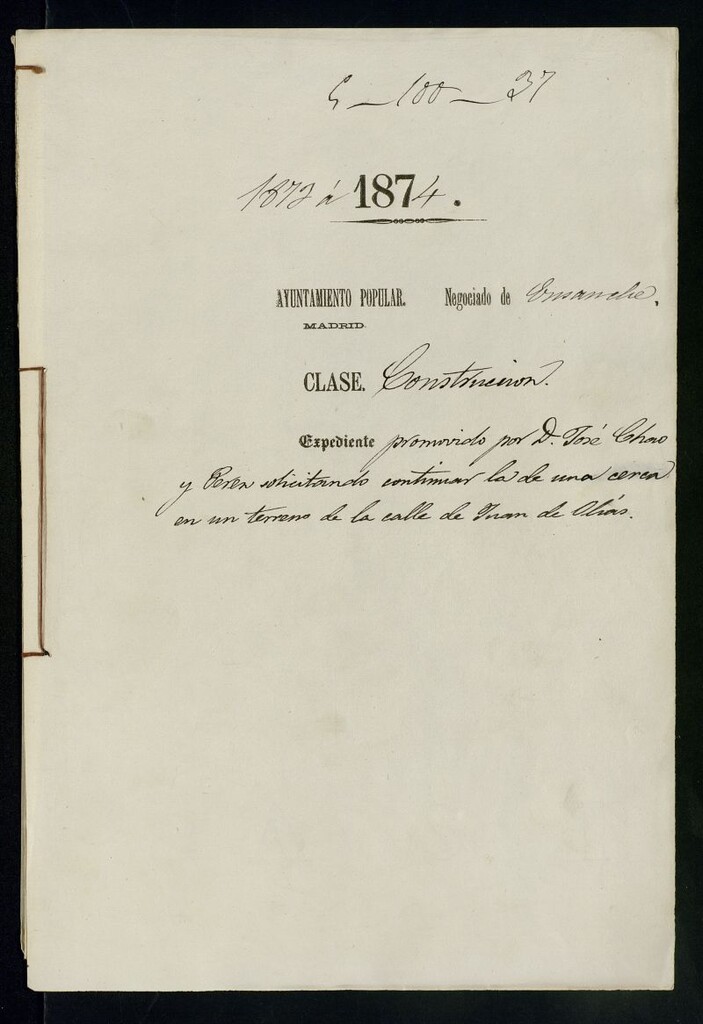 5-100-37
1873 á 1874.
AYUNTAMIENTO POPULAR. Negociado de Ensanche.
MADRID.
CLASE. Construccion.
Expediente promovido por D. José Chao
y Perez solicitando continuar la de una cerca
en un terreno de la calle de Juan de Olias.